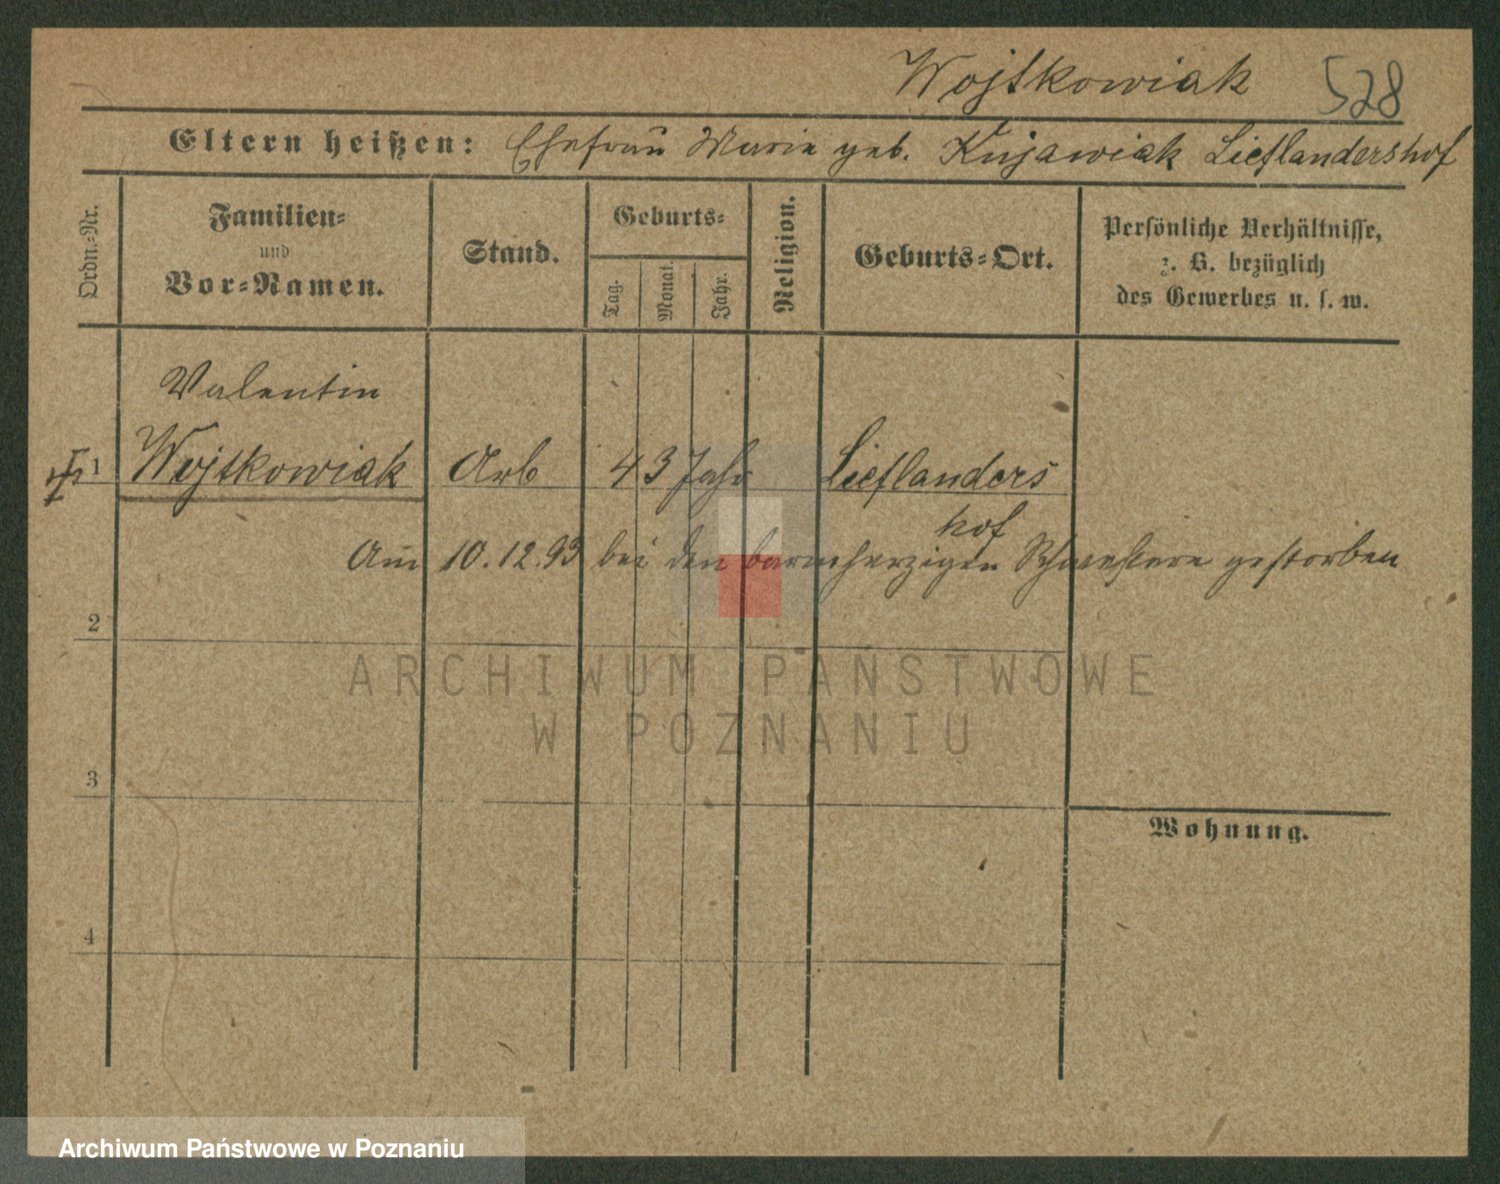 Wojtkowiak 528
Eltern heißen: Ehefrau Marie geb. Kujawiak Lieflandershof
Ordn.-Nr.
Familien-
und
Vor-Namen.
Stand.
Geburts-
Tag.
Monat.
Jahr.
Religion.
Geburts-Ort.
Persönliche Verhältnisse,
z. B. bezüglich
des Gewerbes u. s. w.
Valentin
1 Wojtkowiak Arb 43 Jahr Lieflanders
hof
Am 10.12.93 bei den barmherzigen Schwestern gestorben
2
ARCHIWUM PAŃSTWOWE
W POZNANIU
3
Wohnung.
4
Archiwum Państwowe w Poznaniu